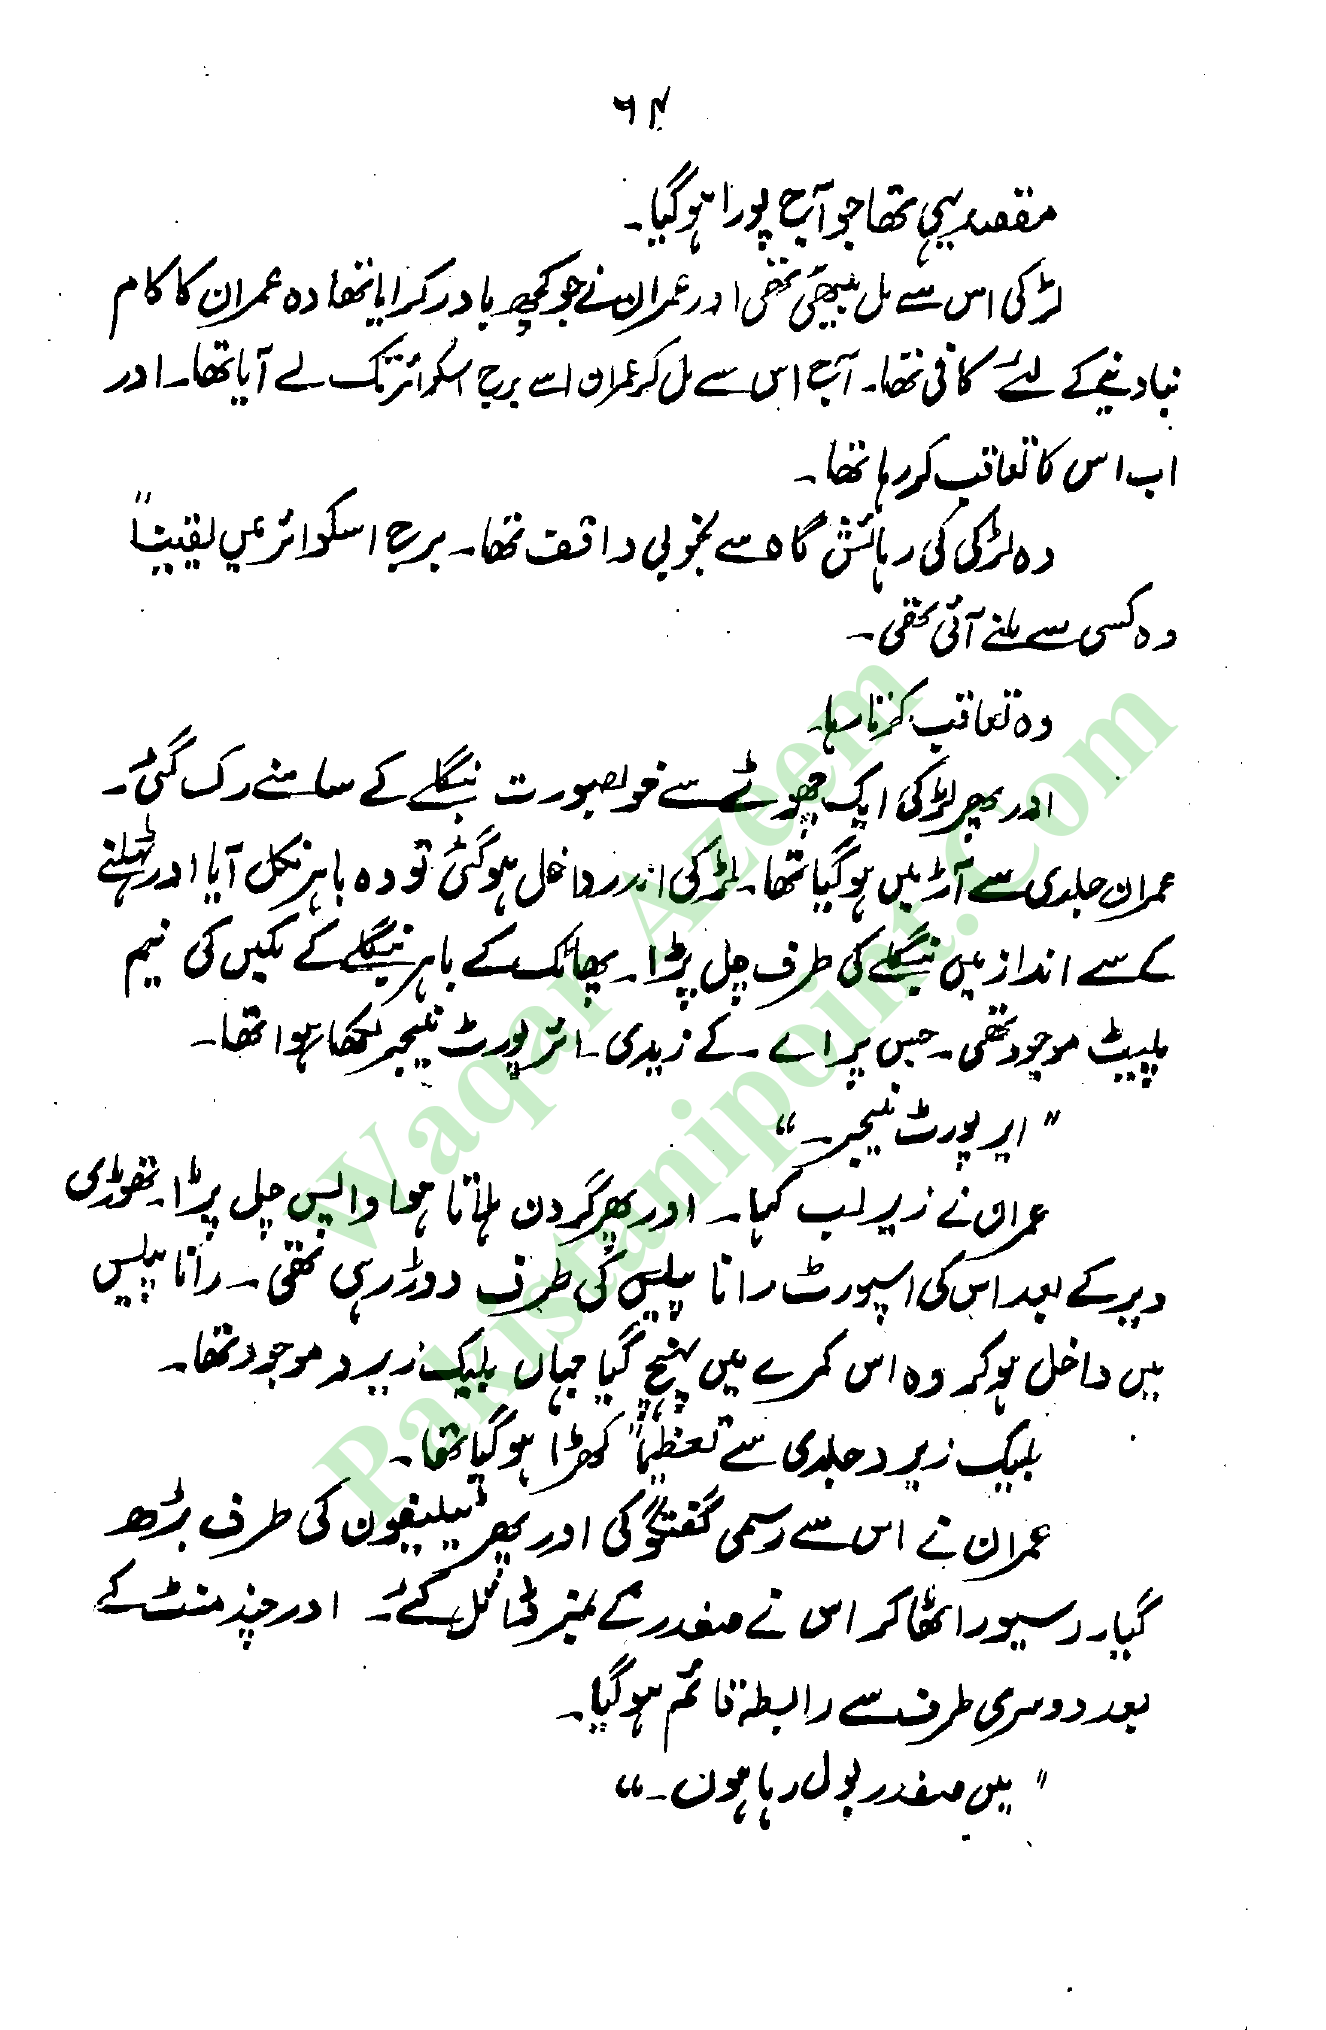 ۶۴
مقصد یہی تھا جو آج پورا ہوگیا۔
لڑکی اس سے مل بیٹھی تھی اور عمران نے جو کچھ باور کرایا تھا وہ عمران کا کام
بنا دینے کے لئے کافی تھا۔ آج اس سے مل کر عمران اسے برج اسکوائر تک لے آیا تھا۔ اور
اب اس کا تعاقب کر رہا تھا۔
وہ لڑکی کی رہائش گاہ سے بخوبی واقف تھا۔ برج اسکوائر میں یقیناً
وہ کسی سے ملنے آئی تھی۔
وہ تعاقب کرتا رہا۔
اور پھر لڑکی ایک چھوٹے سے خوبصورت بنگلے کے سامنے رک گئی۔
عمران جلدی سے آڑ میں ہوگیا تھا۔ لڑکی اندر داخل ہوگئی تو وہ باہر نکل آیا اور ٹہلنے
کے سے انداز میں بنگلے کی طرف چل پڑا۔ پھاٹک کے باہر بنگلے کے مکیں کی نیم
پلیٹ موجود تھی۔ جس پر اے۔ کے زیدی۔ ائر پورٹ منیجر لکھا ہوا تھا۔
"ایر پورٹ منیجر۔"
عمران نے زیر لب کہا۔ اور پھر گردن ہلاتا ہوا واپس چل پڑا۔ تھوڑی
دیر کے بعد اس کی اسپورٹ رانا پیلس کی طرف دوڑ رہی تھی۔ رانا پیلس
میں داخل ہو کر وہ اس کمرے میں پہنچ گیا جہاں بلیک زیرو موجود تھا۔
بلیک زیرو جلدی سے تعظیماً کھڑا ہوگیا تھا۔
عمران نے اس سے رسمی گفتگو کی اور پھر ٹیلیفون کی طرف بڑھ
گیا۔ رسیور اٹھا کر اس نے صفدر کے نمبر ڈائل کئے۔ اور چند منٹ کے
بعد دوسری طرف سے رابطہ قائم ہوگیا۔
"میں صفدر بول رہا ہوں۔"
Waqar Azeem
Pakistanipoint.Com